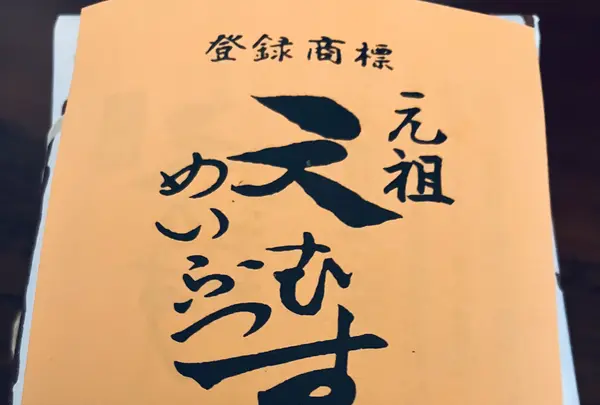 登録商標
元祖
天むす
めいぶつ